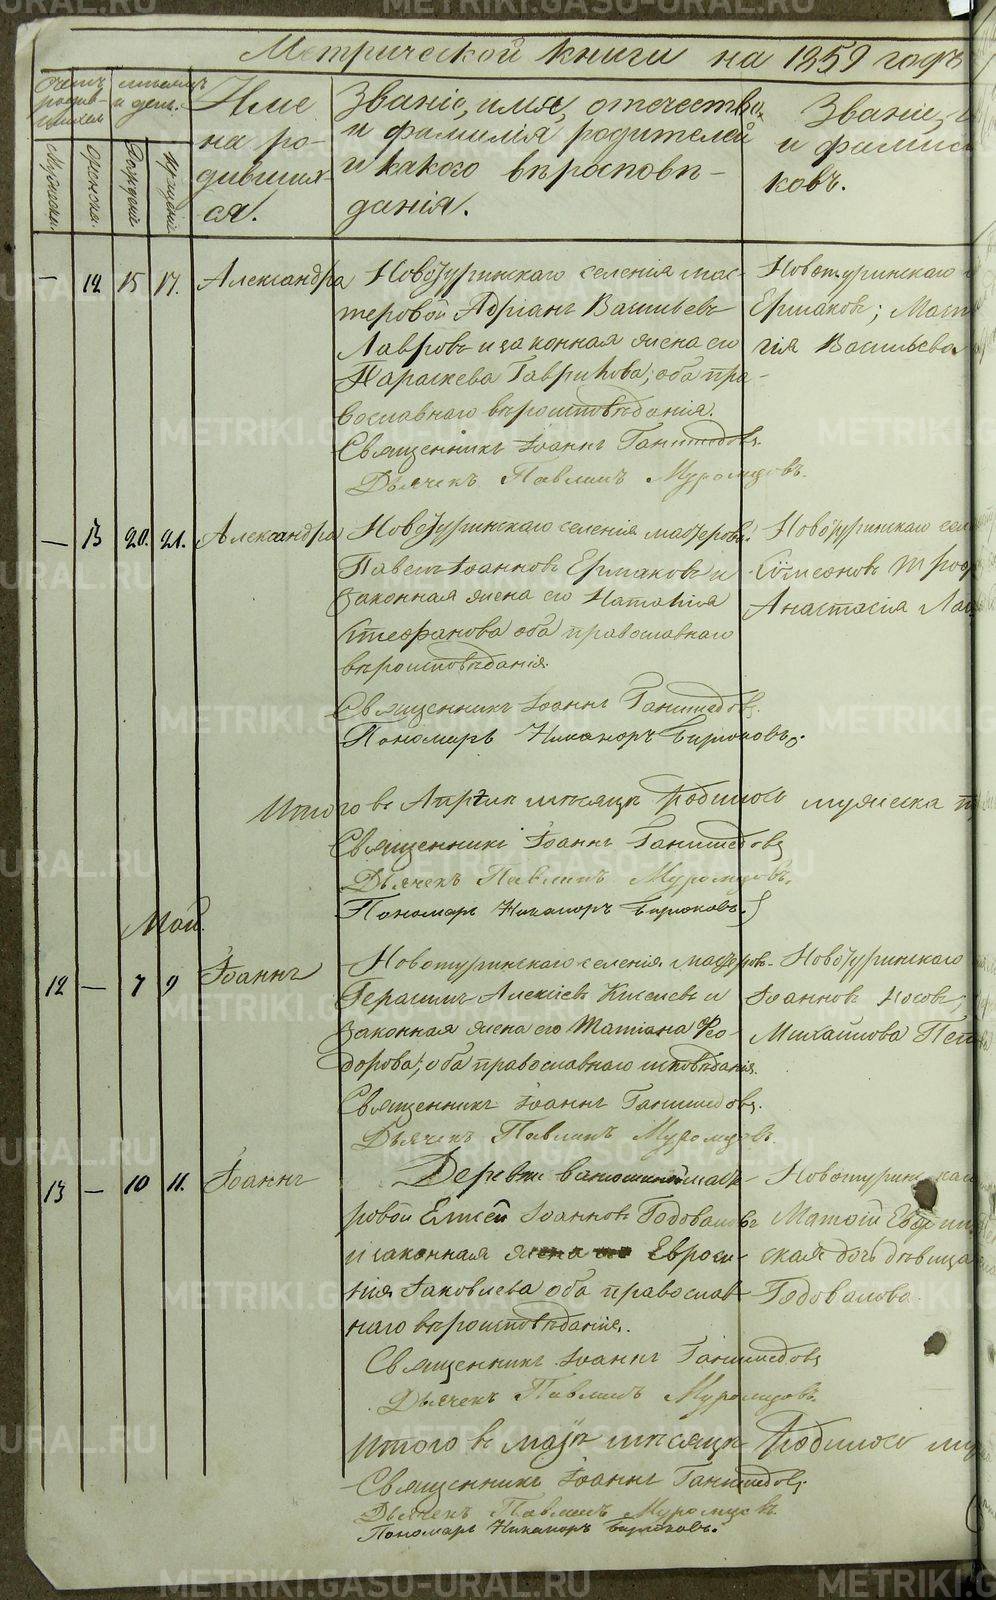 Метрической книги на 1859 годъ
Счетъ родив-шихся
Мужеска.
Женска.
месяцъ и день.
Рождения
Крещения
Име-
на ро-
дивших-
ся.
Званіе, имя, отечество,
и фамилія родителей
и какого вѣроисповѣ-
данія.
Званіе, и
и фамил
ковъ.
— 12 15 17. Александра
Новотуринскаго селенія мас-
теровой Адріанъ Васильевъ
Лавровъ и законная жена его
Параскева Гаврилова; оба пра-
вославнаго вѣроисповѣданія.
Священникъ Іоаннъ Ганимедовъ
Дьячекъ Павлинъ Муромцовъ.
Новотуринскаго
Ермаковъ; Мат
гія Васильева
— 13 20. 21. Александра
Новотуринскаго селенія мастеров.
Павелъ Іоанновъ Ермаковъ и
законная жена его Наталія
Стефанова оба православнаго
вѣроисповѣданія.
Священникъ Іоаннъ Ганимедовъ
Пономарь Никаноръ Бирюковъ.
Новотуринскаго сел
Симеоновъ Троф
Анастасія Ла
Итого въ Апрѣлѣ мѣсяцѣ родилось мужеска п
Священникъ Іоаннъ Ганимедовъ
Дьячекъ Павлинъ Муромцовъ.
Пономарь Никаноръ Бирюковъ.
Май.
12 — 7 9 Іоаннъ
Новотуринскаго селенія мастеров.
Герасимъ Алексѣевъ Киселевъ и
законная жена его Татіана Фео-
дорова; оба православнаго исповѣданія.
Священникъ Іоаннъ Ганимедовъ.
Дьячекъ Павлинъ Муромцовъ.
Новотуринскаго
Іоанновъ Носовъ;
Михайлова
13 — 10 11. Іоаннъ
Деревни масте-
ровой Елисей Іоанновъ Годоваловъ
и законная жена его Евроси-
нія Іаковлева оба православ-
наго вѣроисповѣданія.
Священникъ Іоаннъ Ганимедовъ
Дьячекъ Павлинъ Муромцовъ.
Новотурин
Матѳій
ская дочь дѣвица
Годовалова.
Итого въ маѣ мѣсяцѣ родилось му
Священникъ Іоаннъ Ганимедовъ.
Дьячекъ Павлинъ Муромцовъ.
Пономарь Никаноръ Бирюковъ.
METRIKI.GASO-URAL.RU